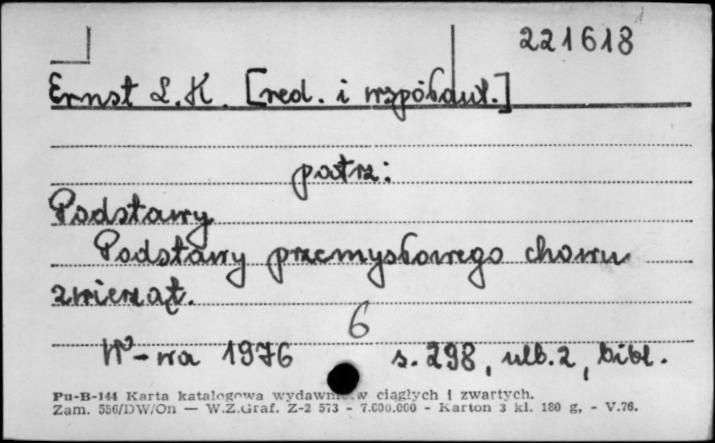 221618
Ernst L. K. [red. i współaut.]
patrz:
Podstawy
Podstawy przemysłowego chowu
zwierząt.
6
W-wa 1976 s. 298, ulb. 2, bibl.
Pu-B-144 Karta katalogowa wydawnictw ciągłych i zwartych.
Zam. 556/DW/On — W.Z.Graf. Z-2 573 - 7.000.000 - Karton 3 kl. 180 g, - V.76.